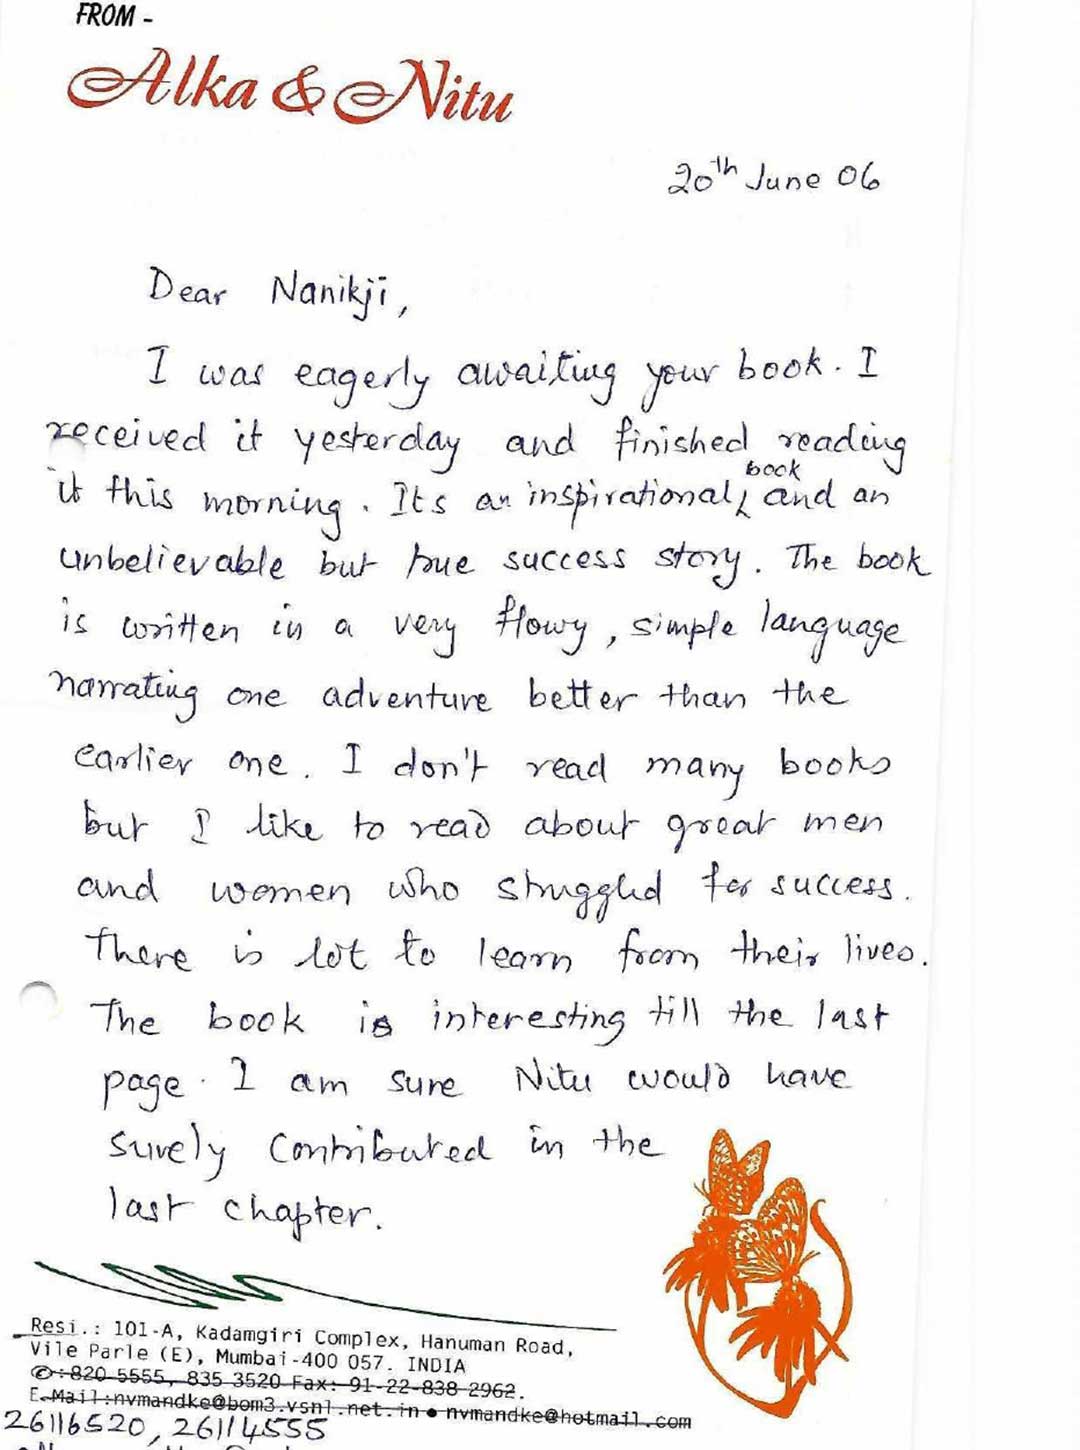 FROM -
Alka & Nitu
20th June 06
Dear Nanikji,
I was eagerly awaiting your book. I
received it yesterday and finished reading
it this morning. Its an inspirational book and an
unbelievable but true success story. The book
is written in a very flowy, simple language
narrating one adventure better than the
earlier one. I don't read many books
but I like to read about great men
and women who struggled for success.
There is lot to learn from their lives.
The book is interesting till the last
page. I am sure Nitu would have
surely contributed in the
last chapter.
Resi.: 101-A, Kadamgiri Complex, Hanuman Road,
Vile Parle (E), Mumbai-400 057. INDIA
✆:820 5555, 835 3520 Fax: 91-22-838 2962.
E-Mail:nvmandke@bom3.vsnl.net.in • nvmandke@hotmail.com
26116520, 26114555